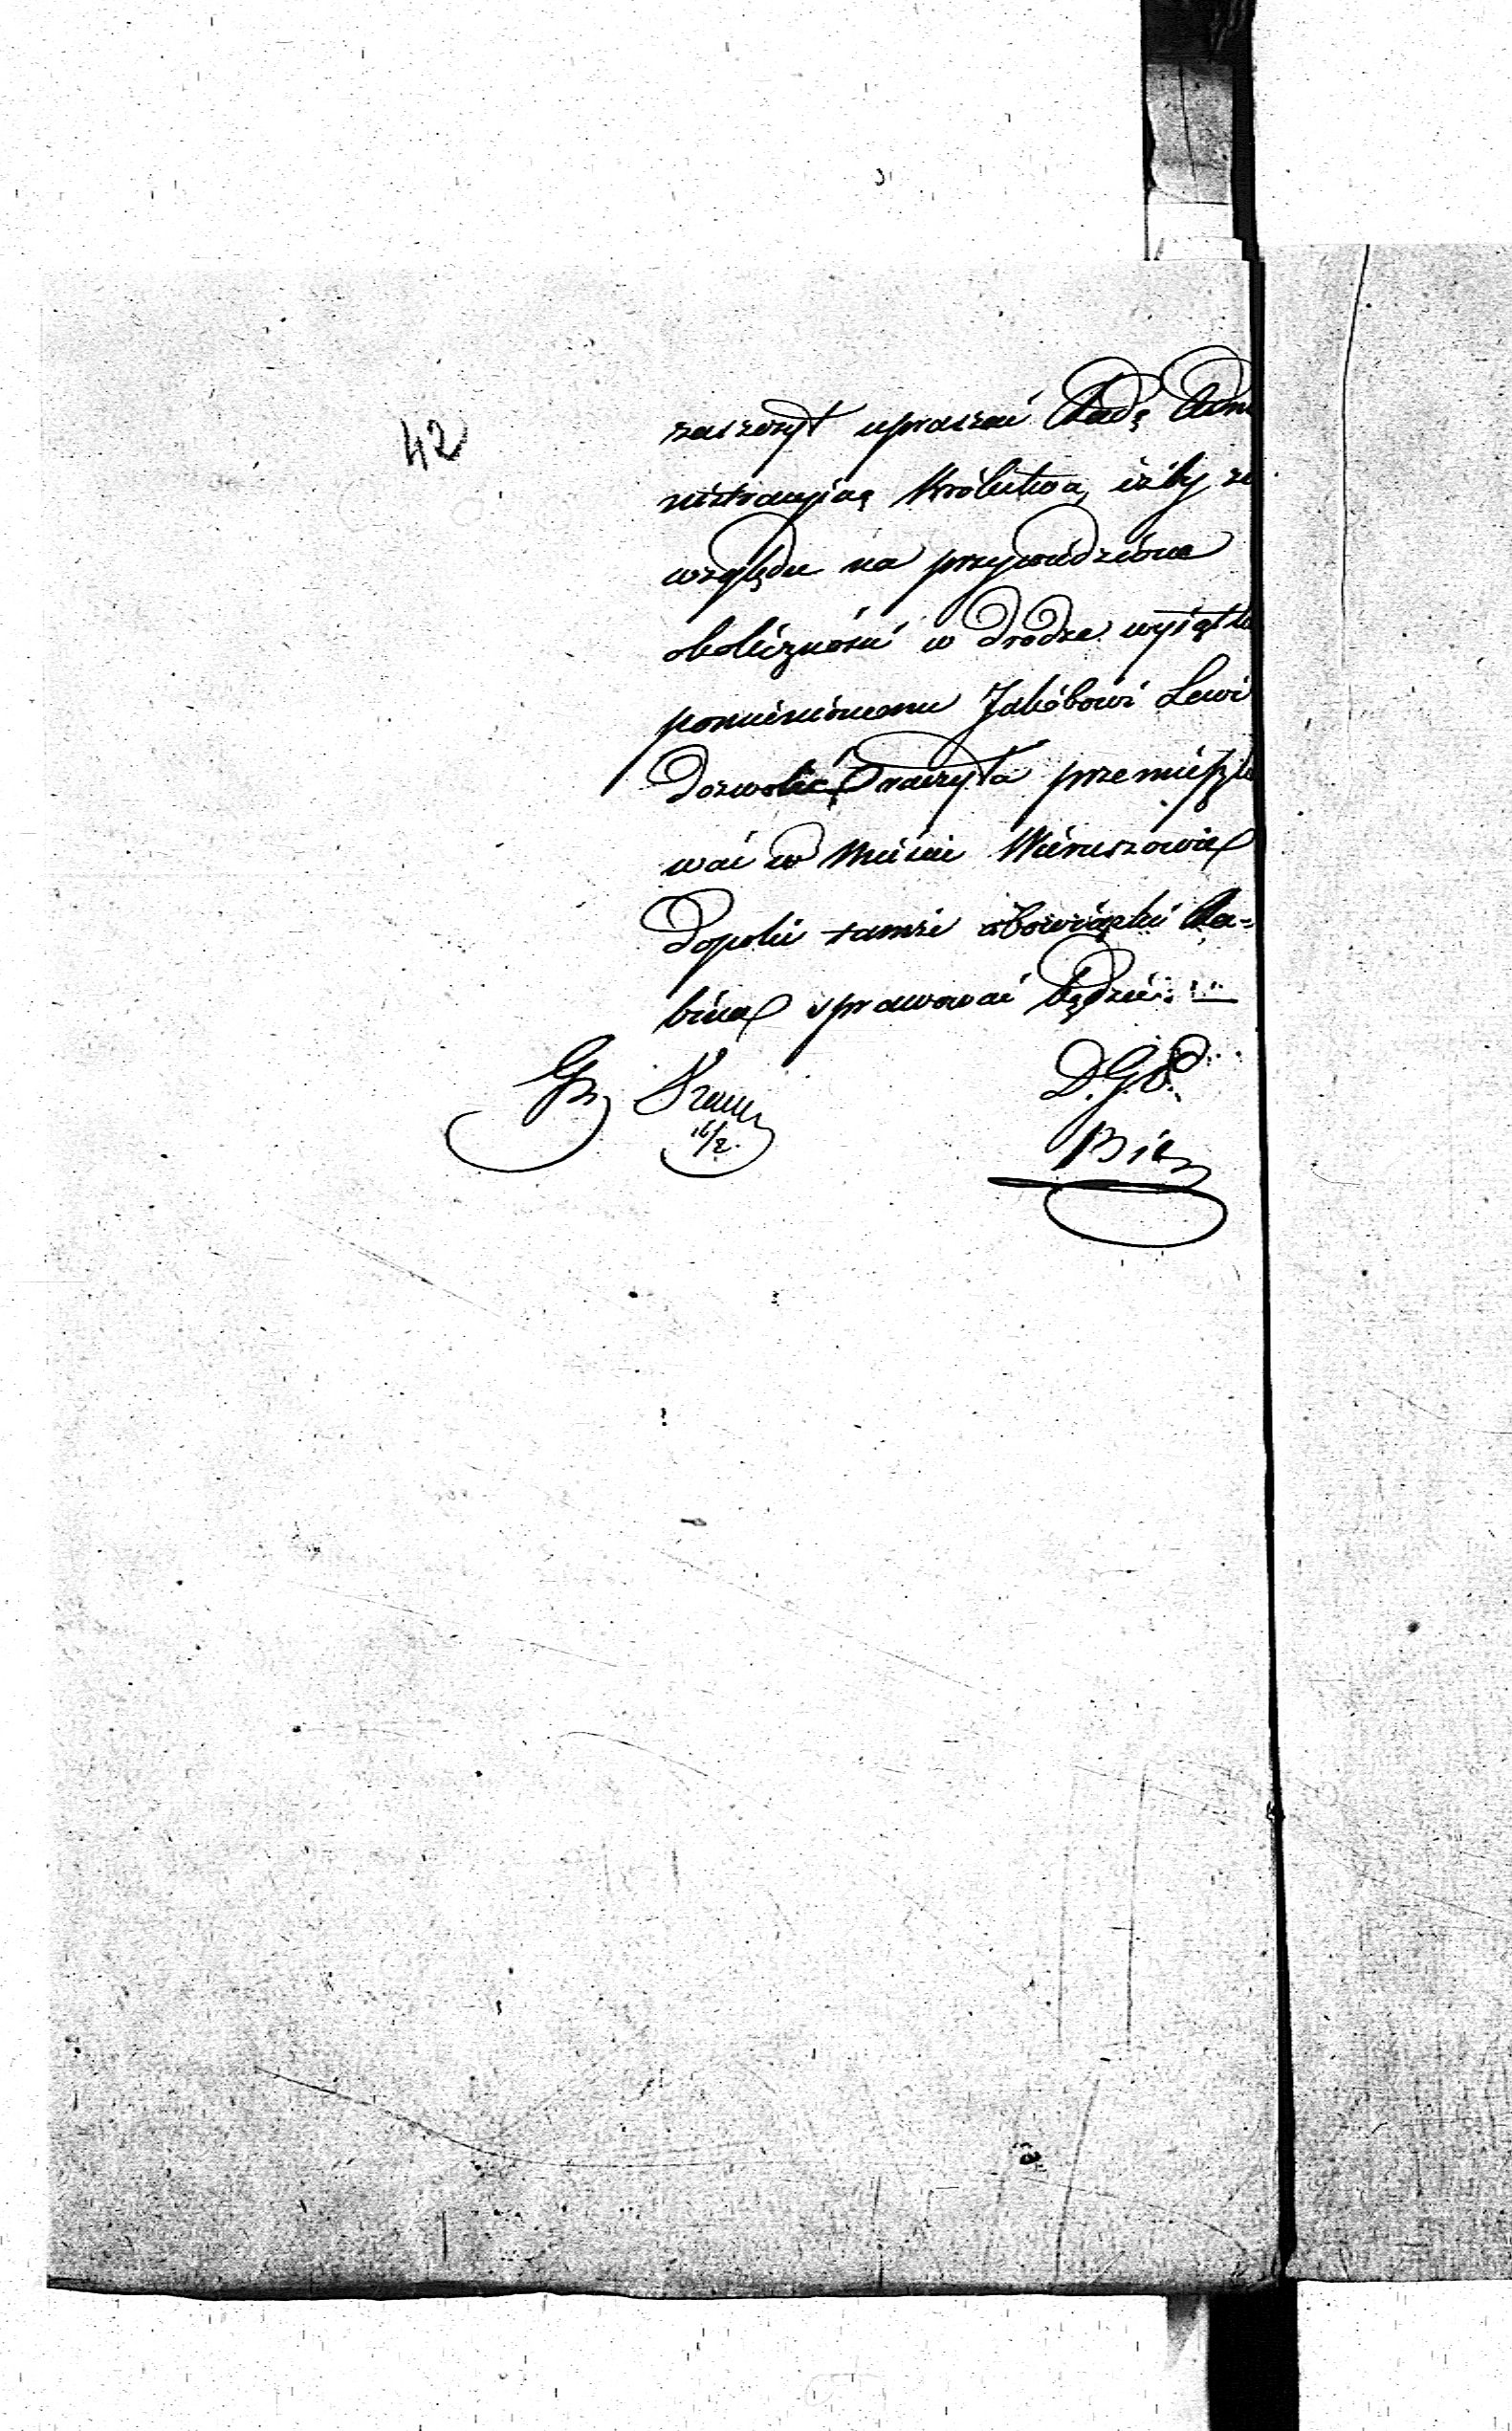 42
zaszczyt upraszać Radę Admi
nistracyjną Królestwa, iżby ze
względu na przywiedzione
okoliczności w drodze wyjątku
pomienionemu Jakóbowi Lewi
dozwolić raczyła przemieszki
wać w Mieście Wieruszowie
dopóki tamże obowiązki Ra-
bina sprawować będzie. —
D.G.P.
16/2.